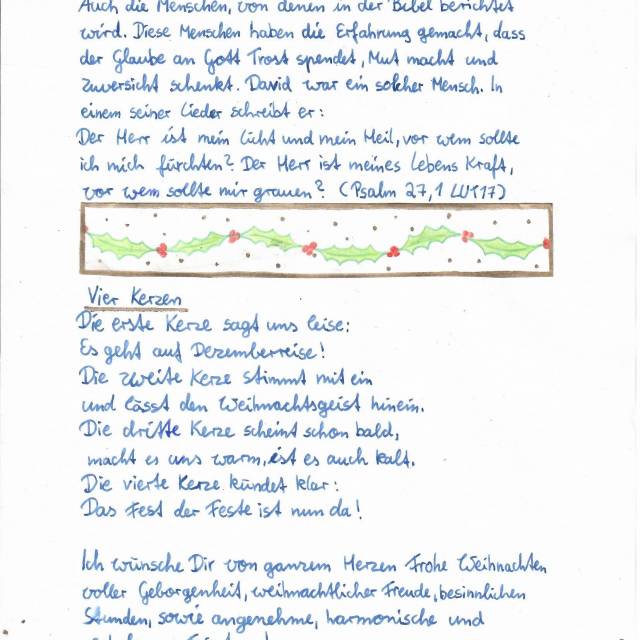 Auch die Menschen, von denen in der Bibel berichtet
wird. Diese Menschen haben die Erfahrung gemacht, dass
der Glaube an Gott Trost spendet, Mut macht und
Zuversicht schenkt. David war ein solcher Mensch. In
einem seiner Lieder schreibt er:
Der Herr ist mein Licht und mein Heil, vor wem sollte
ich mich fürchten? Der Herr ist meines Lebens Kraft,
vor wem sollte mir grauen? (Psalm 27,1 LUT17)
Vier Kerzen
Die erste Kerze sagt uns leise:
Es geht auf Dezemberreise!
Die zweite Kerze stimmt mit ein
und lässt den Weihnachtsgeist hinein.
Die dritte Kerze scheint schon bald,
macht es uns warm, ist es auch kalt.
Die vierte Kerze kündet klar:
Das Fest der Feste ist nun da!
Ich wünsche Dir von ganzem Herzen Frohe Weihnachten
voller Geborgenheit, weihnachtlicher Freude, besinnlichen
Stunden, sowie angenehme, harmonische und